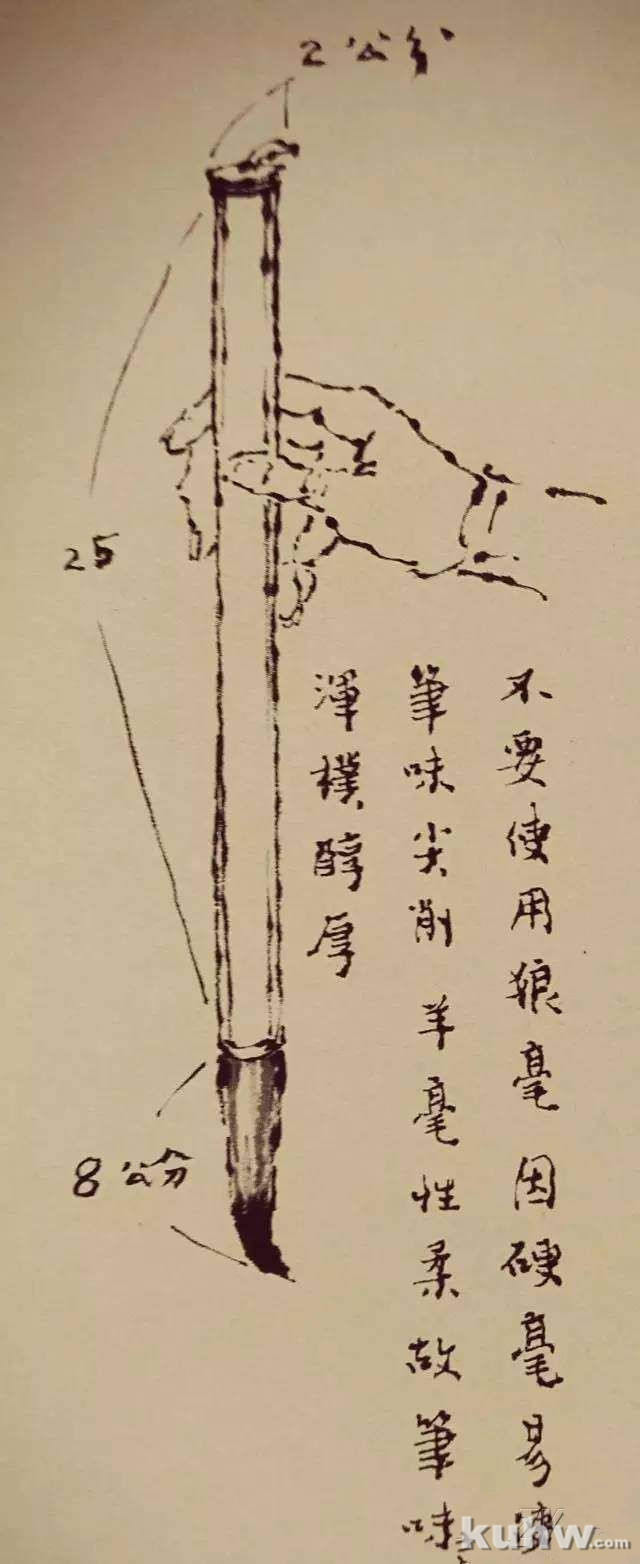 2公分
25
8公分
不要使用狼毫因硬毫易
筆味尖削 羊毫性柔故筆味
渾樸醇厚
kuhw.com